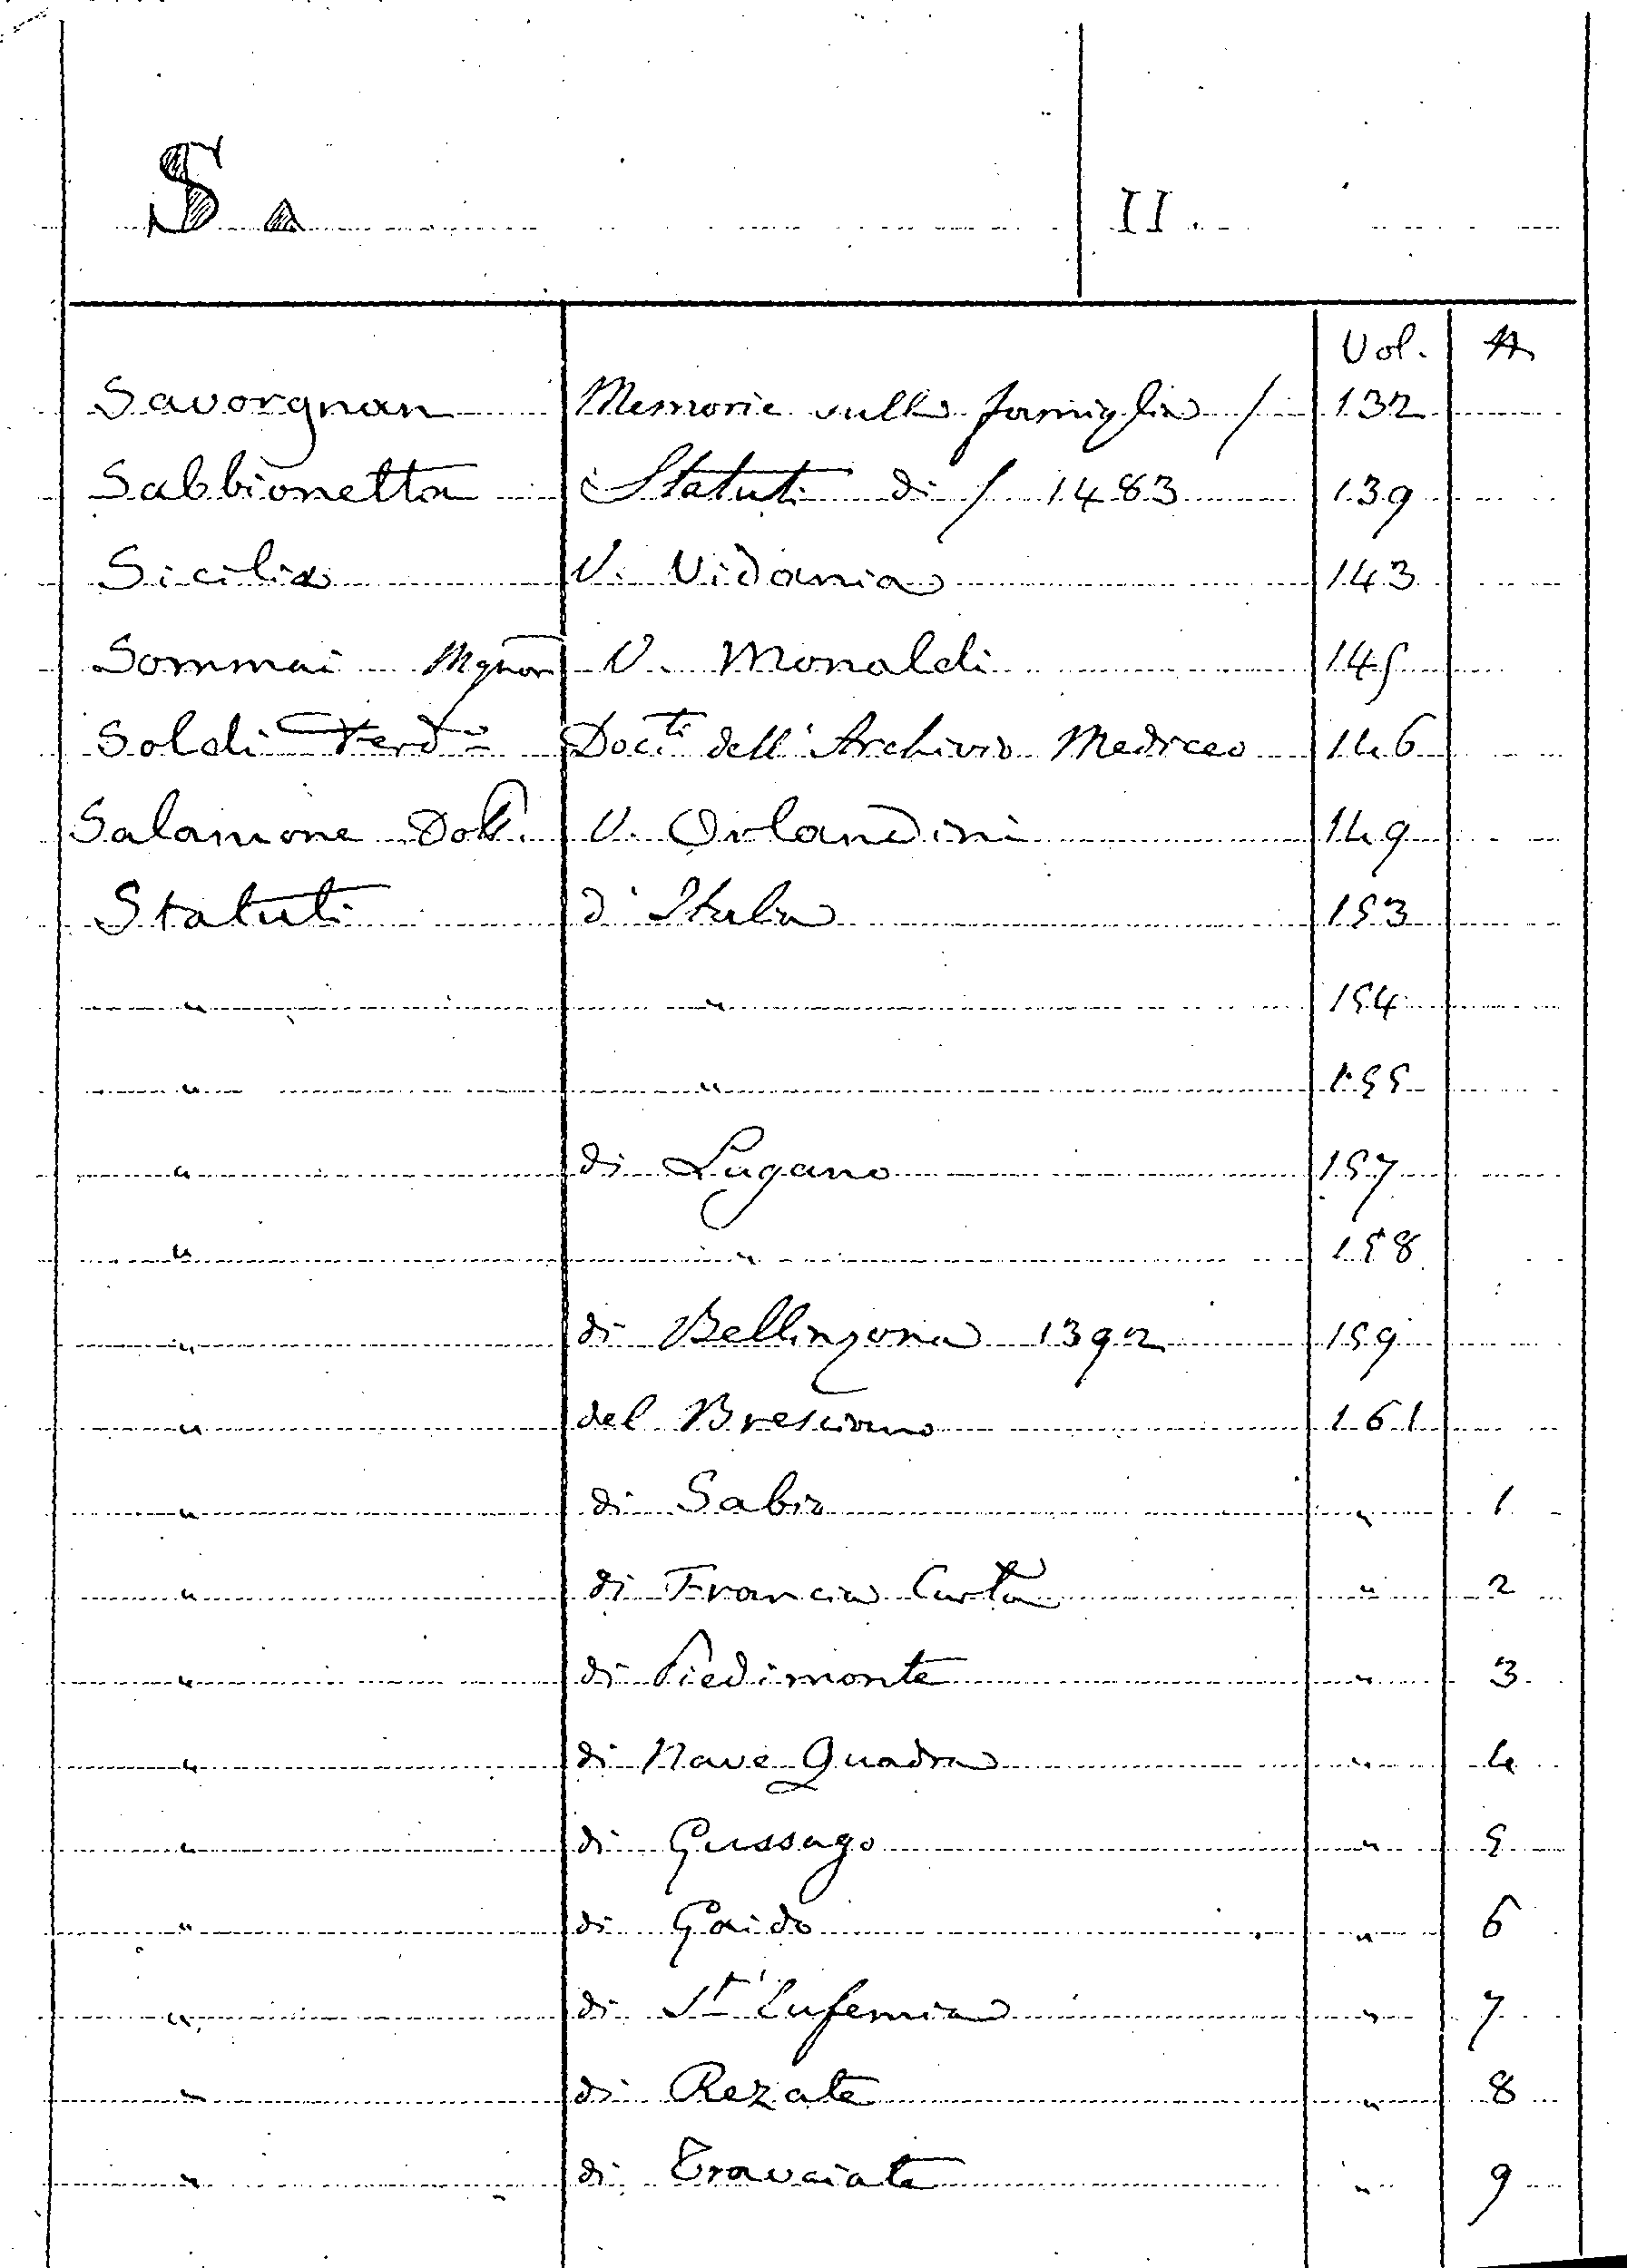 S A II.
Vol. A
Savorgnan Memorie sulla famiglia / 132
Sabbionetta Statuti di / 1483 139
Sicilia V. Vidania 143
Sommai Mgnor V. Monaldi 145
Soldi Ferdº Docti dell'Archivio Mediceo 146
Salamone Dott. V. Orlandini 149
Statuti d'Italia 153
" " 154
" " 155
" di Lugano 157
" " 158
" di Bellinzona 1392 159
" del Bresciano 161
" di Sabio " 1
" di Francia Curta " 2
" di Piedimonte " 3
" di Nave Quadra " 4
" di Gussago " 5
" di Gaido " 6
" di St' Eufemia " 7
" di Rezate " 8
" di Travaiate " 9